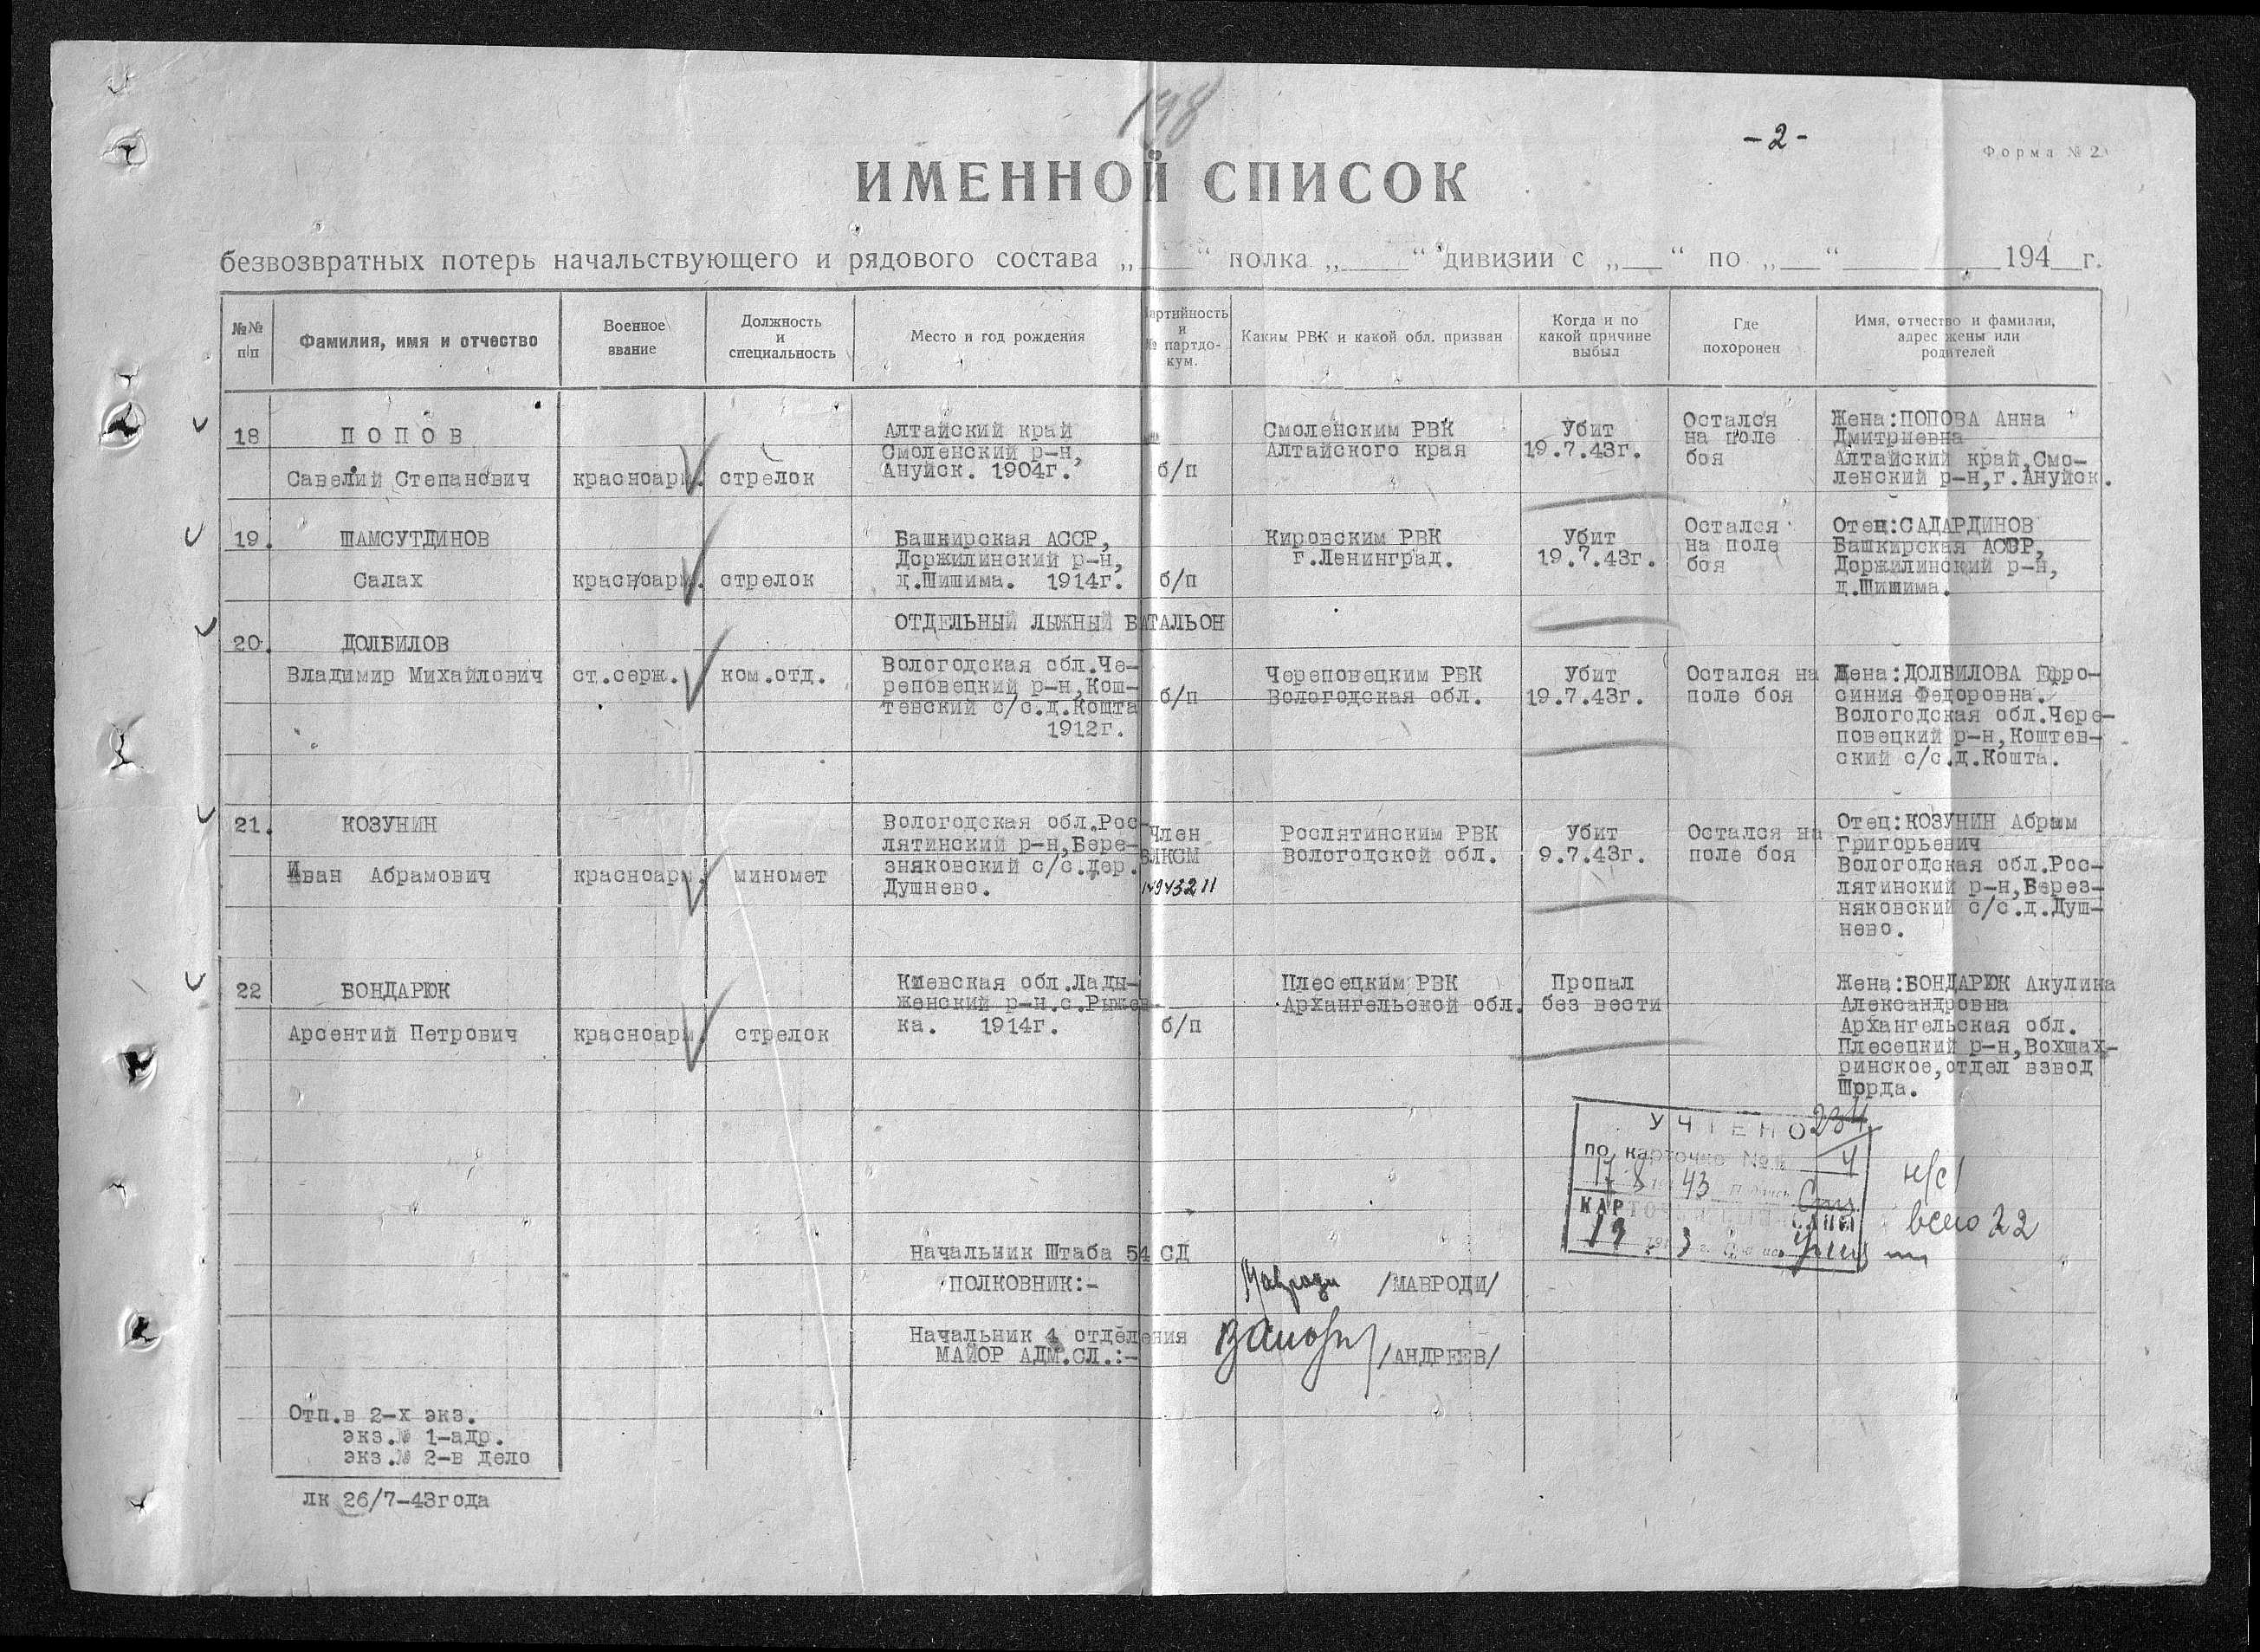 198
-2-
Форма №2
ИМЕННОЙ СПИСОК
безвозвратных потерь начальствующего и рядового состава „___“ полка „___“ дивизии с „__“ по „__“ ______ 194__г.
№№ п/п
Фамилия, имя и отчество
Военное звание
Должность и специальность
Место и год рождения
артийность и № партдо- кум.
Каким РВК и какой обл. призван
Когда и по какой причине выбыл
Где похоронен
Имя, отчество и фамилия, адрес жены или родителей
18
ПОПОВ
Савелий Степанович
красноарм.
стрелок
Алтайский край
Смоленский р-н,
Ануйск. 1904г.
б/п
Смоленским РВК
Алтайского края
Убит
19.7.43г.
Остался
на поле
боя
Жена:ПОПОВА Анна
Дмитриевна
Алтайский край,Смо-
ленский р-н,г.Ануйск.
19.
ШАМСУТДИНОВ
Салах
красноарм.
стрелок
Башкирская АССР,
Доржилинский р-н,
д.Шишима. 1914г.
б/п
Кировским РВК
г.Ленинград.
Убит
19.7.43г.
Остался
на поле
боя
Отец:САДАРДИНОВ
Башкирская АССР,
Доржилинский р-н,
д.Шишима.
ОТДЕЛЬНЫЙ ЛЫЖНЫЙ БАТАЛЬОН
20.
ДОЛБИЛОВ
Владимир Михайлович
ст.серж.
ком.отд.
Вологодская обл.Че-
реповецкий р-н,Кош-
тевский с/с.д.Кошта
1912г.
б/п
Череповецким РВК
Вологодская обл.
Убит
19.7.43г.
Остался на
поле боя
Жена:ДОЛБИЛОВА Ефро-
синия Федоровна.
Вологодская обл.Чере-
повецкий р-н,Коштев-
ский с/с.д.Кошта.
21.
КОЗУНИН
Иван Абрамович
красноарм.
миномет
Вологодская обл.Рос-
лятинский р-н,Бере-
зняковский с/с.дер.
Душнево.
Член
ВЛКСМ
14943211
Рослятинским РВК
Вологодской обл.
Убит
9.7.43г.
Остался на
поле боя
Отец:КОЗУНИН Абрам
Григорьевич
Вологодская обл.Рос-
лятинский р-н,Берез-
няковский с/с.д.Душ-
нево.
22
БОНДАРЮК
Арсентий Петрович
красноарм.
стрелок
Киевская обл.Лады-
женский р-н.с.Рыжев-
ка. 1914г.
б/п
Плесецким РВК
Архангельской обл.
Пропал
без вести
Жена:БОНДАРЮК Акулина
Александровна
Архангельская обл.
Плесецкий р-н,Вохшах-
ринское,отдел взвод
Шорда.
УЧТЕНО 234
по карточке № 4
17 8 1943
КАРТОЧКИ
19 1943 г.
н/с1
всего 22
Начальник Штаба 54 СД
ПОЛКОВНИК:-
Мавроди /МАВРОДИ/
Начальник 4 отделения
МАЙОР АДМ.СЛ.:-
/АНДРЕЕВ/
Отп.в 2-х экз.
экз.№ 1-адр.
экз.№ 2-в дело
лк 26/7-43года